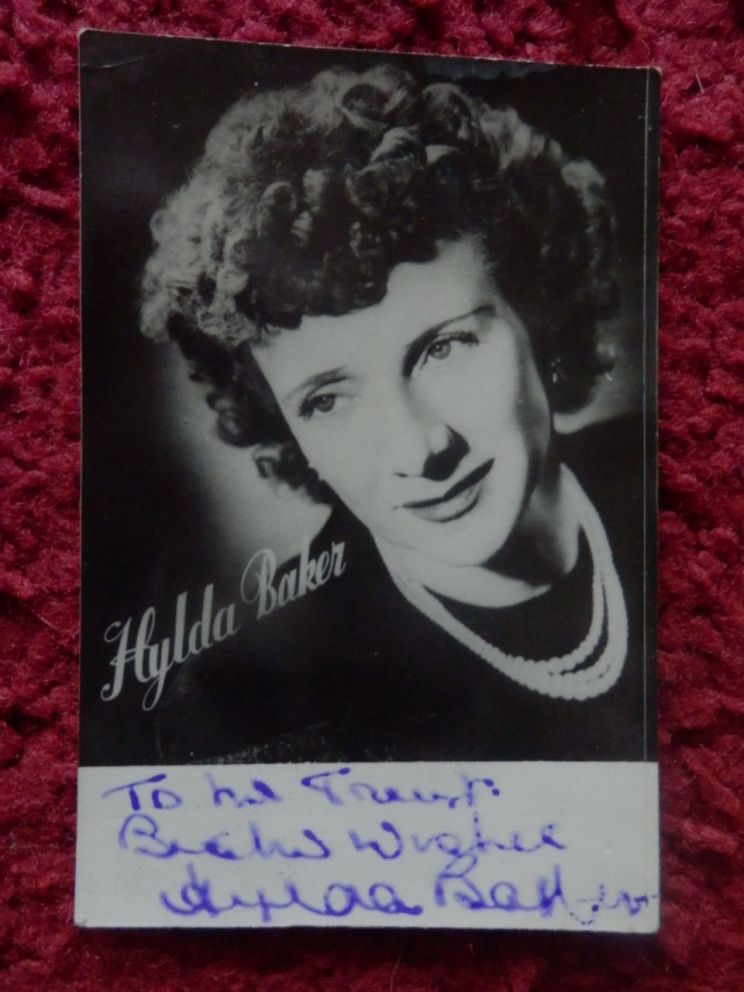 Hylda Baker
To Mr Trent.
Wishes
Hylda Baker